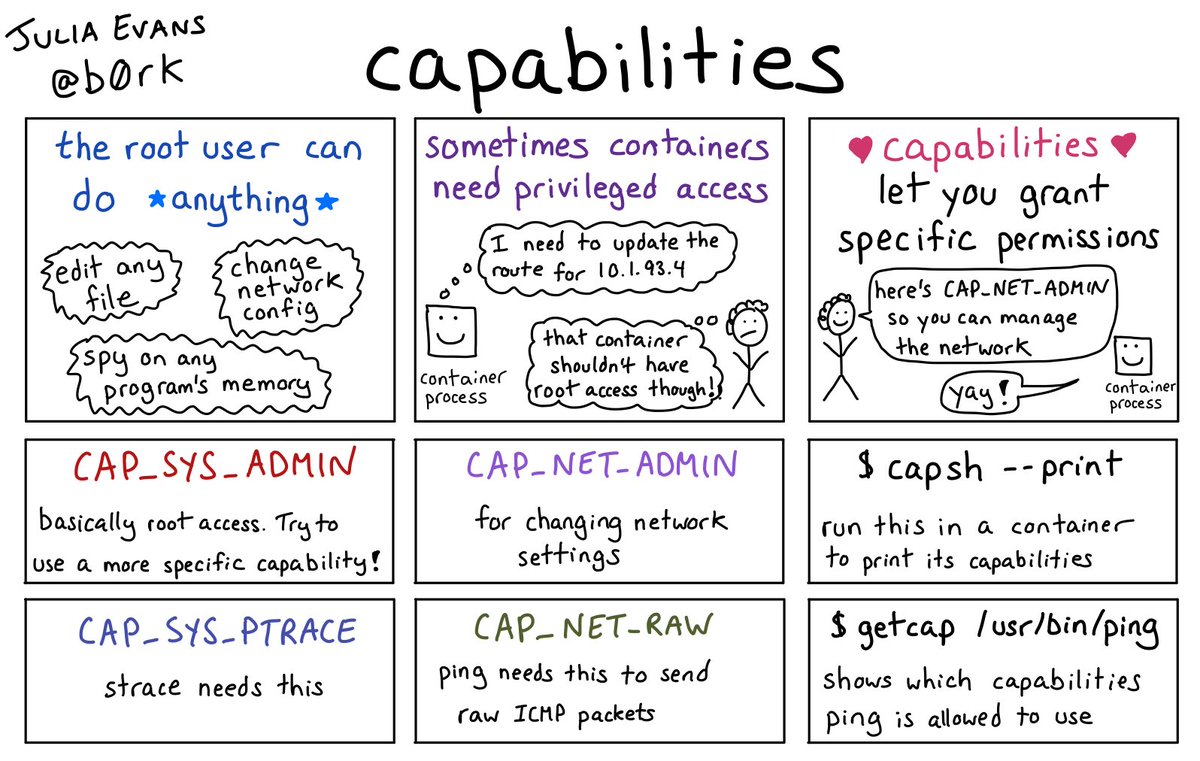 JULIA EVANS
@b0rk
capabilities
the root user can
do ★anything★
edit any
file
change
network
config
spy on any
program's memory
sometimes containers
need privileged access
I need to update the
route for 10.1.93.4
container
process
that container
shouldn't have
root access though!
♥ capabilities ♥
let you grant
specific permissions
here's CAP_NET_ADMIN
so you can manage
the network
yay!
container
process
CAP_SYS_ADMIN
basically root access. Try to
use a more specific capability!
CAP_NET_ADMIN
for changing network
settings
$ capsh --print
run this in a container
to print its capabilities
CAP_SYS_PTRACE
strace needs this
CAP_NET_RAW
ping needs this to send
raw ICMP packets
$ getcap /usr/bin/ping
shows which capabilities
ping is allowed to use